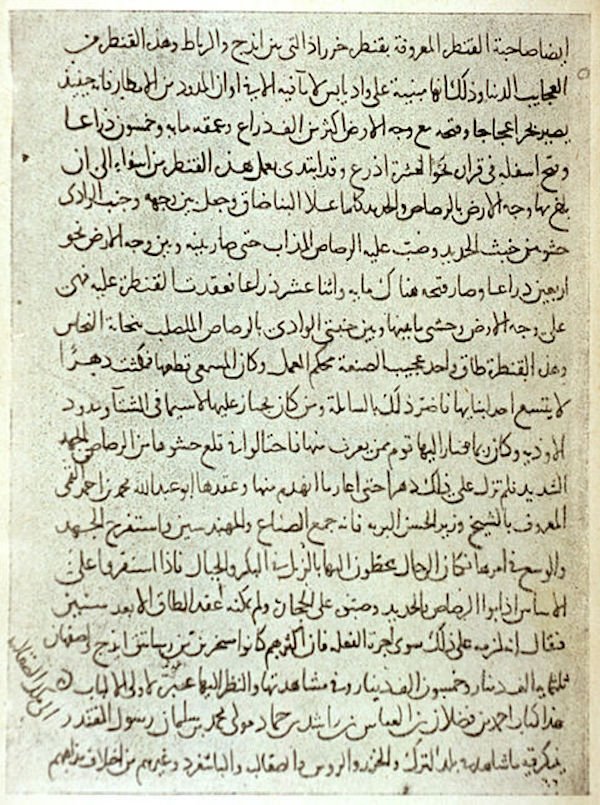 ايضا صاحبة القنطرة المعروفة بقنطرة خرزاذ التي بين ايذج والرباط وهذه القنطرة من
العجايب الدنيا وذلك انها مبنية على واد يابس لا ما فيه الا في اوان المدود من الامطار فانه حينيذ
يصير بحرا عجاجا وفتحه مع وجه الارض اكثر من الف ذراع وعمقه مايه وخمسون ذراعا
وفتح اسفله في قراره نحو العشرة اذرع وقد ابتدى بعمل هذه القنطرة من اسفلها الى ان
بلغ بها وجه الارض بالرصاص والحديد كلما علا البنا ضاق وجعل بين وجهه وجنب الوادى
حشو من خبث الحديد وصب عليه الرصاص المذاب حتى صار بينه وبين وجه الارض نحو
اربعين ذراعا وصار فتحه هناك مايه واثنا عشر ذراعا فعقدت القنطرة عليه فهى
على وجه الارض وحشى ما بينها وبين جنبتى الوادى بالرصاص المصلب بنحاتة النحاس
وهذه القنطرة طاق واحد عجيب الصنعة محكم العمل وكان المسمعى قطعها فمكثت دهرًا
لا يتسع احد لبنايها فاضر ذلك بالسابلة ومن كان يجتاز عليها لا سيما فى الشتآ ومدود
الاوديه وكان ربما صار اليها قوم ممن يعرف منها فاحتالوا فى قلع حشوها من الرصاص بالجهد
الشديد فلم تزل على ذلك دهرا حتى اعاد ما انهدم منها وعقدها ابو عبد الله محمد بن احمد القمى
المعروف بالشيخ وزير الحسن البويه فانه جمع الصناع والمهندسين واستفرغ الجهد
والوسع في امرها فكان الرجال يحطون اليها بالزبل في البكر والحبال فاذا استقروا على
الاساس اذابوا الرصاص والحديد وصبوه على الحجارة ولم يمكنه عقد الطاق الا بعد سنين
فيقال انه لزمه على ذلك سوى اجرة الفعلة فان اكثرهم كانوا مسخرين من رساتيق ايذج واصفهان
ثلثمايه الف دينار وخمسون الف دينار وفي مشاهدتها والنظر اليها عبرة لاولى الالباب
هذا كتاب احمد بن فضلان بن العباس بن راشد بن حماد مولى محمد بن سلمان رسول المقتدر
الى ملك الصقالبة
يذكر فيه ما شاهد في بلد الترك والخزر والروس والصقالبة والباشغرد وغيرهم من اختلاف مذاهبهم